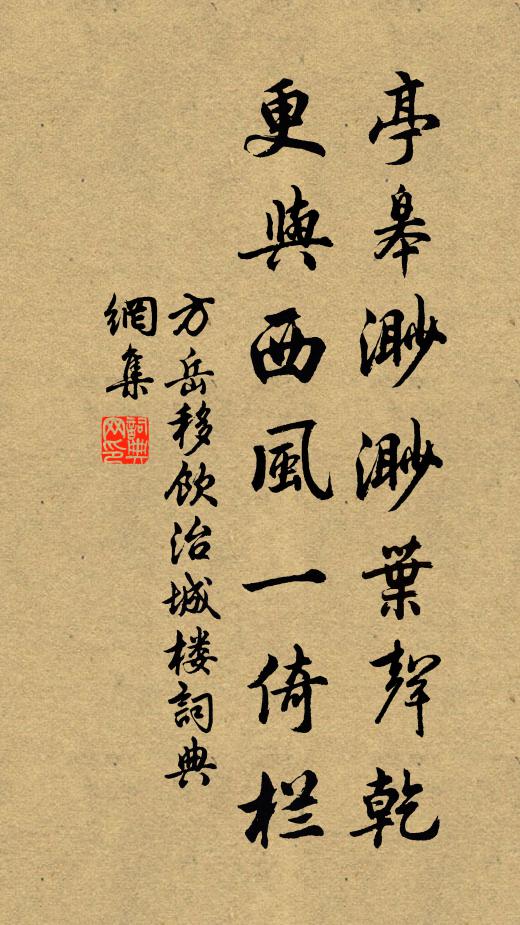 亭皋渺渺葉聲乾
更與西風一倚栏
方岳移飲治城楼詞典
網集
詞典网印